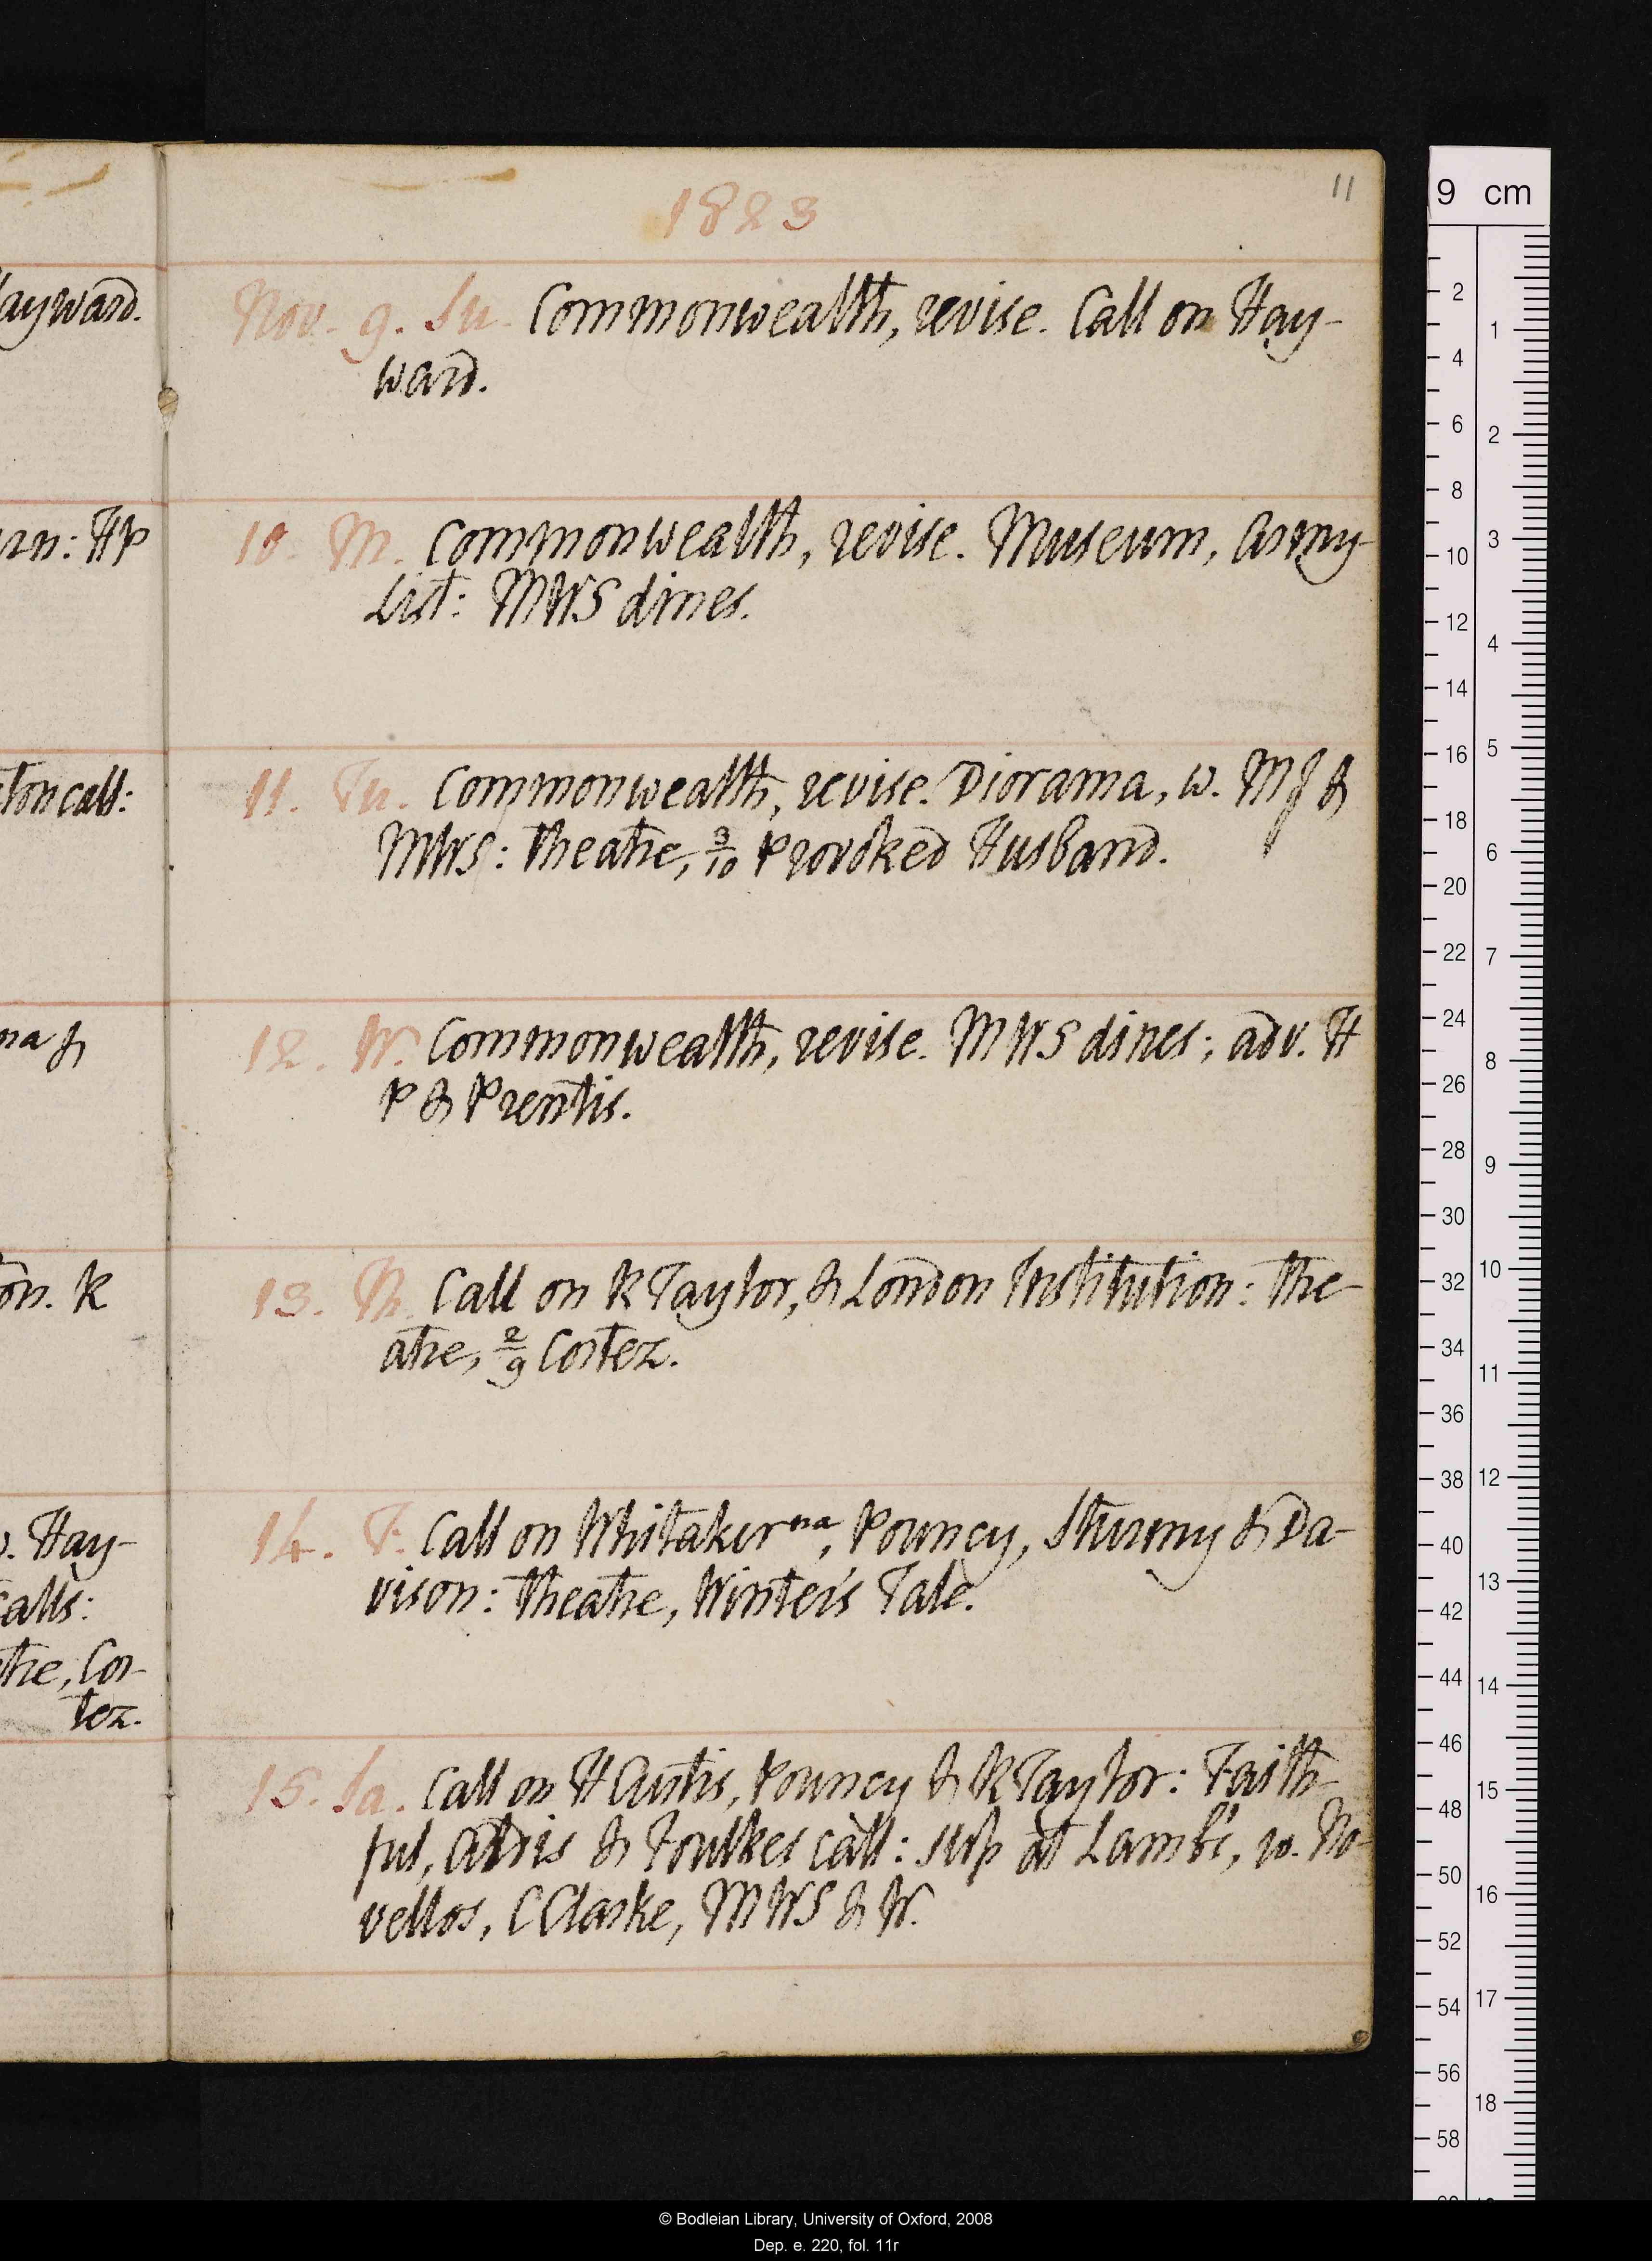 ayward.
rn: HP
ton call:
na &
on. R
. Hay-
calls:
tre, Cor-
tez.
11
1823
Nov. 9. Su. Commonwealth, revise. Call on Hay-
ward.
10. M. Commonwealth, revise. Museum, Army
List: MWS dines.
11. Tu. Commonwealth, revise. Diorama, w. MJ &
MWS: theatre, 3/10 Provoked Husband.
12. W. Commonwealth, revise. MWS dines; adv. H
P & Prentis.
13. Th. Call on R Taylor, & London Institution: the-
atre, 2/9 Cortez.
14. F. Call on Whitaker na, Pouncy, Sturmy & Da-
vison: theatre, Winter's Tale.
15. Sa. Call on H Austis, Pouncy & R Taylor: Faith-
ful, Aldis & Foulkes call: sup at Lamb's, w. No-
vellos, C Clarke, MWS & W.
9 cm
2
4
6
8
10
12
14
16
18
20
22
24
26
28
30
32
34
36
38
40
42
44
46
48
50
52
54
56
58
1
2
3
4
5
6
7
8
9
10
11
12
13
14
15
16
17
18
© Bodleian Library, University of Oxford, 2008
Dep. e. 220, fol. 11r